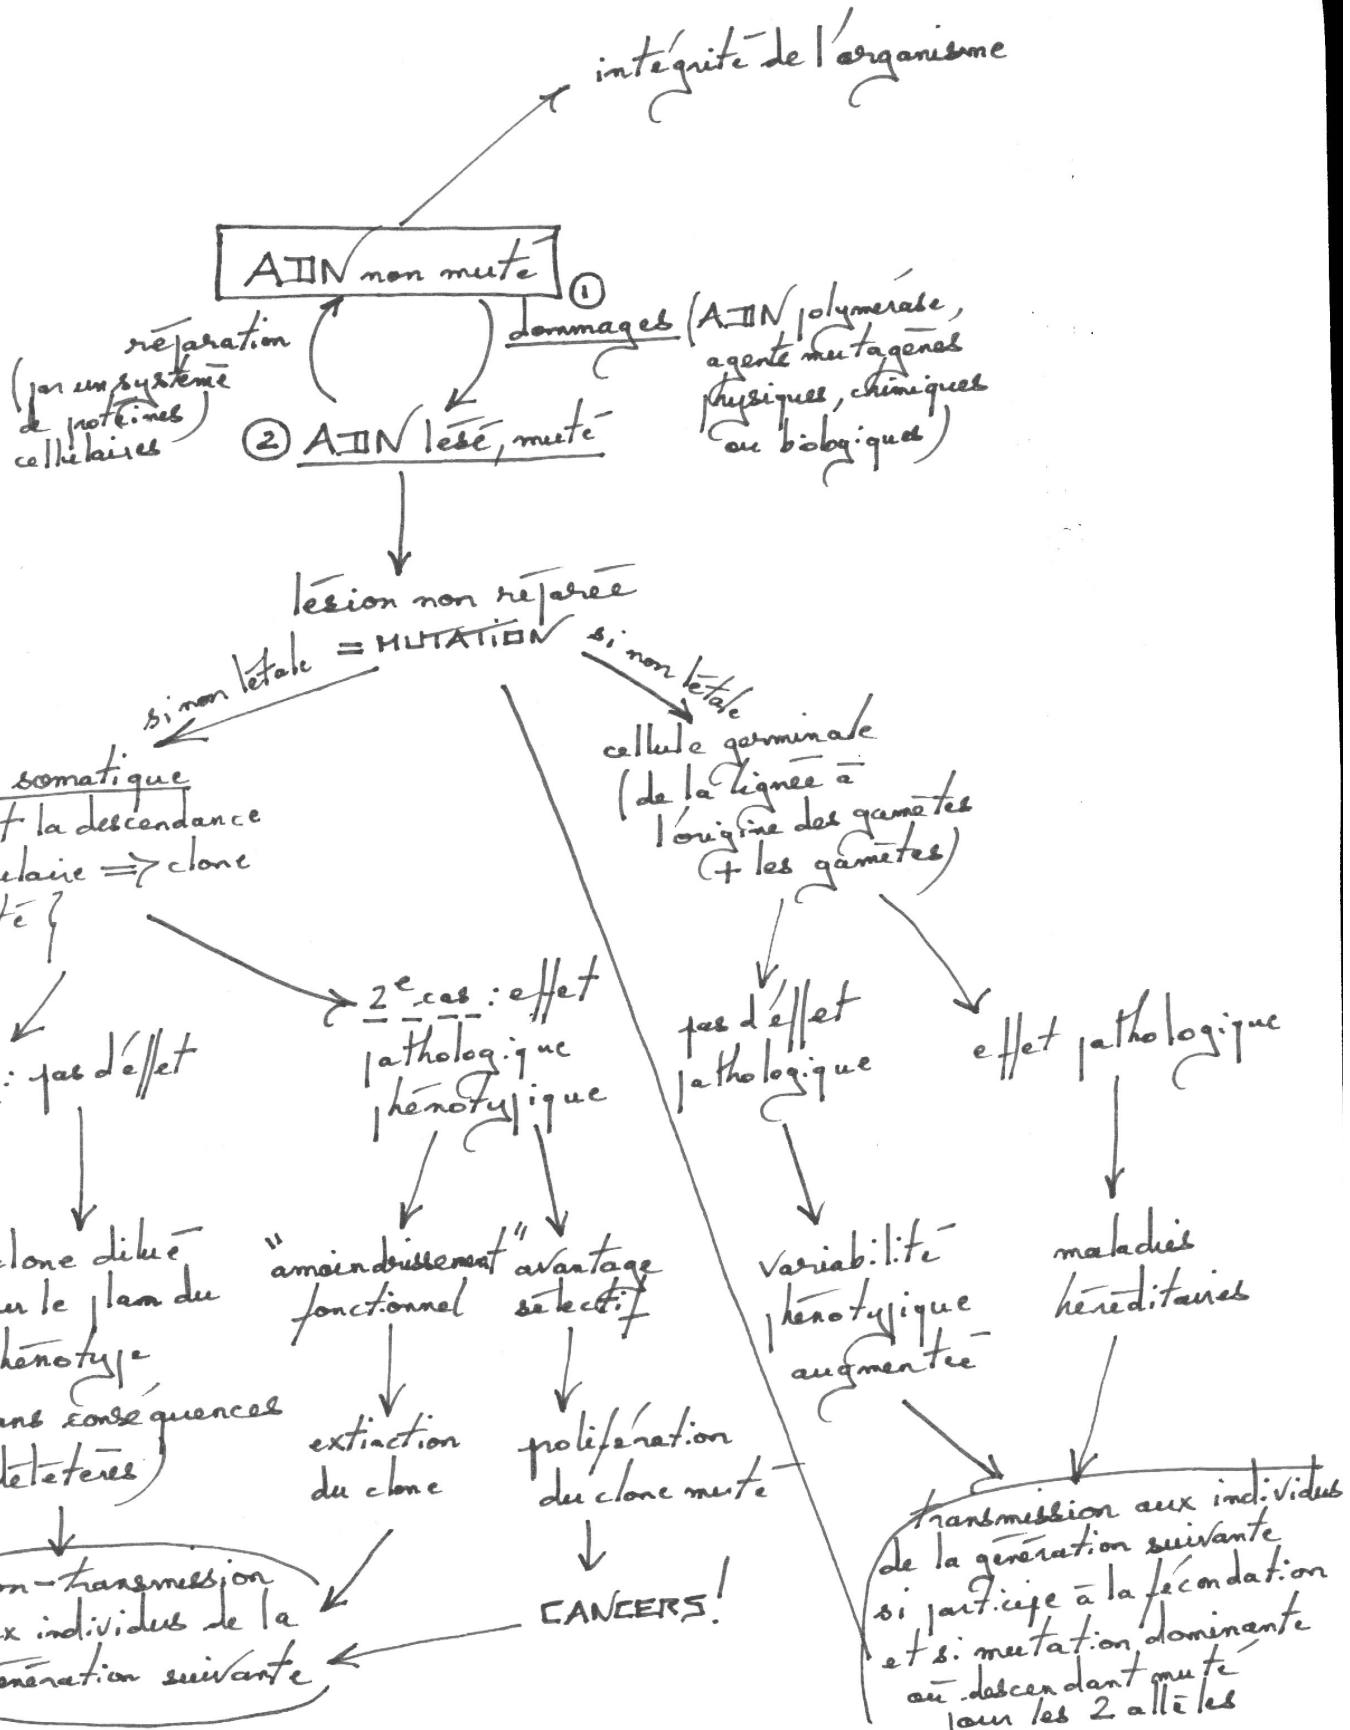 intégrité de l'organisme
ADN non muté
①
dommages (ADN polymérase,
agents mutagènes
physiques, chimiques
ou biologiques)
réparation
(par un système
de protéines
cellulaires)
② ADN lésé, muté
lésion non réparée
= MUTATION
si non létale
si non létale
somatique
t la descendance
ulaire => clone
té }
cellule germinale
(de la lignée à
l'origine des gamètes
(+ les gamètes)
: pas d'effet
2e cas : effet
pathologique
phénotypique
pas d'effet
pathologique
effet pathologique
clone dilué
ur le plan du
hénotype
ans conséquences
délétères)
"amoindrissement"
fonctionnel
avantage
sélectif
variabilité
phénotypique
augmentée
maladies
héréditaires
extinction
du clone
prolifération
du clone muté
CANCERS!
on-transmission
x individus de la
énération suivante
transmission aux individus
de la génération suivante
si participe à la fécondation
et si mutation dominante
ou descendant muté
pour les 2 allèles